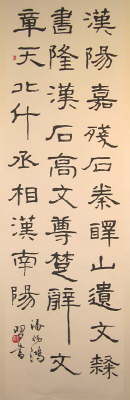 漢陽嘉殘石秦嶧山遺文隸
書隆漢石高文尊楚辭文
章天北什丞相漢南陽
習書